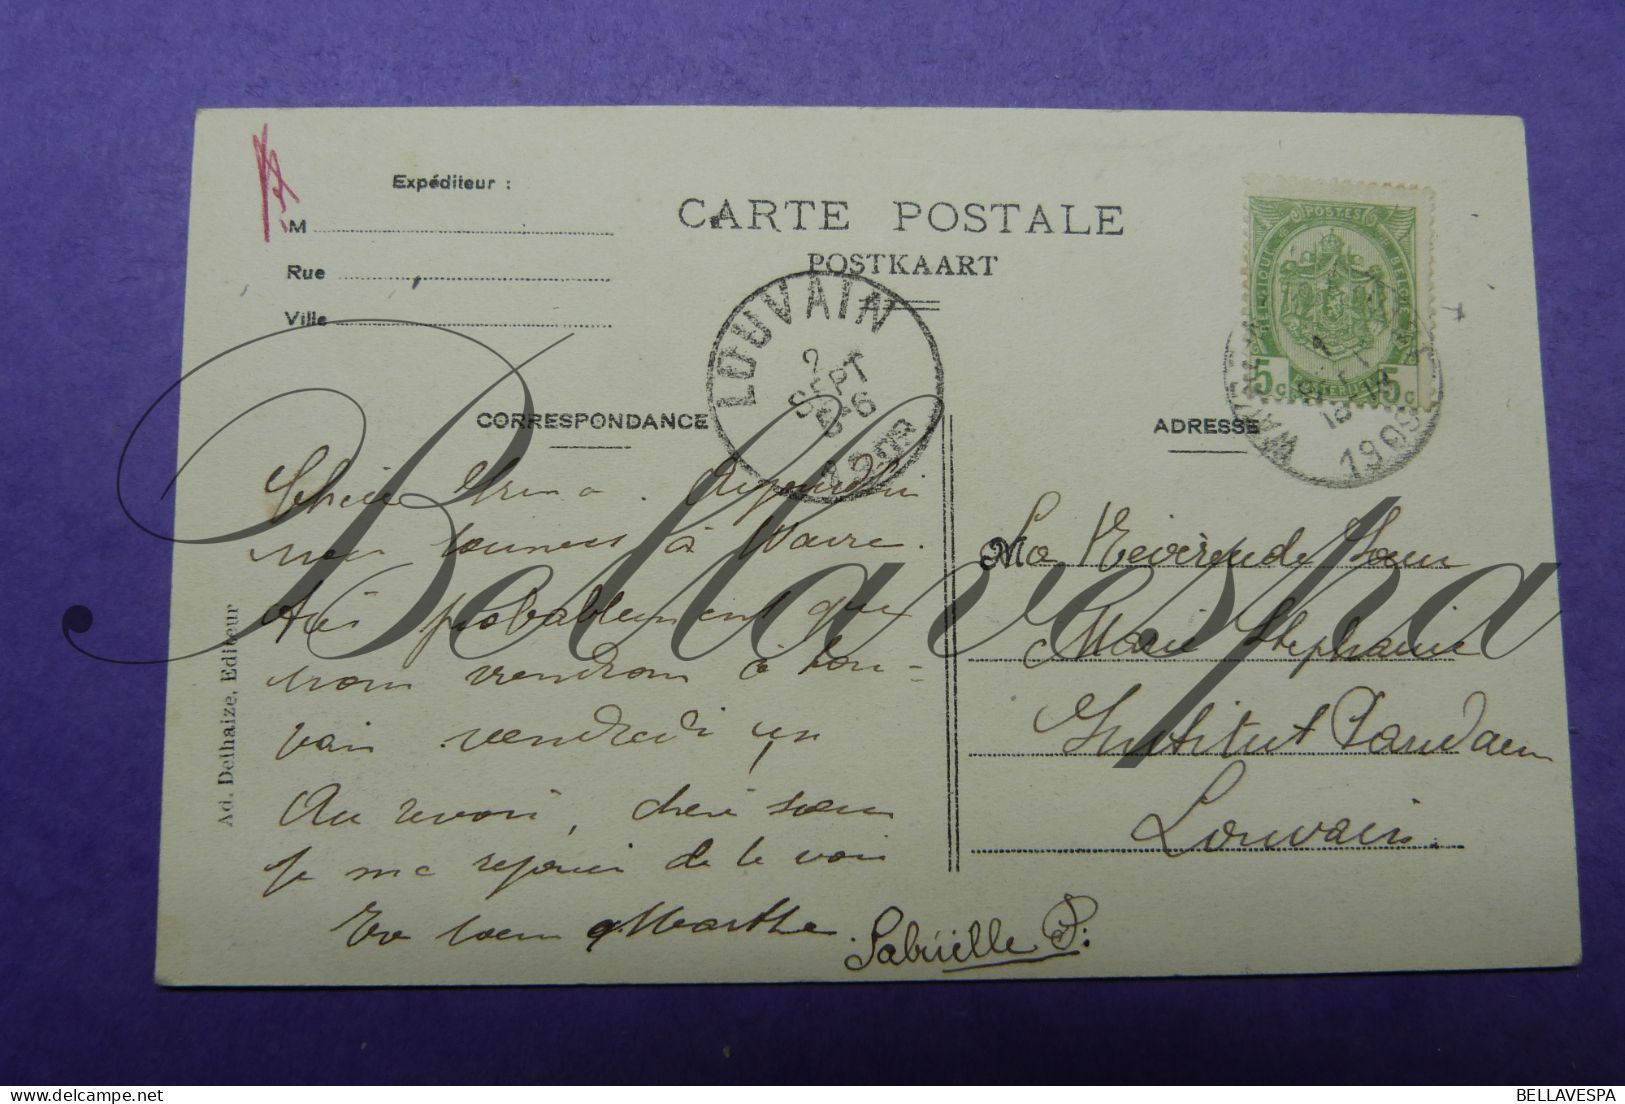 Expéditeur :
M
Rue
Ville
CARTE POSTALE
POSTKAART
LOUVAIN
2
SEPT
1908
POSTES
5c 5c
WAVRE
1908
CORRESPONDANCE
ADRESSE
Chère Irma. Aujourd'hui
nous sommes à Wavre.
très probablement que
nous viendrons à Lou=
vain vendredi
Au revoir, chère sœur
Je me réjouis de te voir
Ta sœur Marthe.
Gabrielle P.
La Révérende Sœur
Marie Stéphanie
Institut Paridaen
Louvain.
Ad. Delhaize, Editeur
Bellavespa
BELLAVESPA